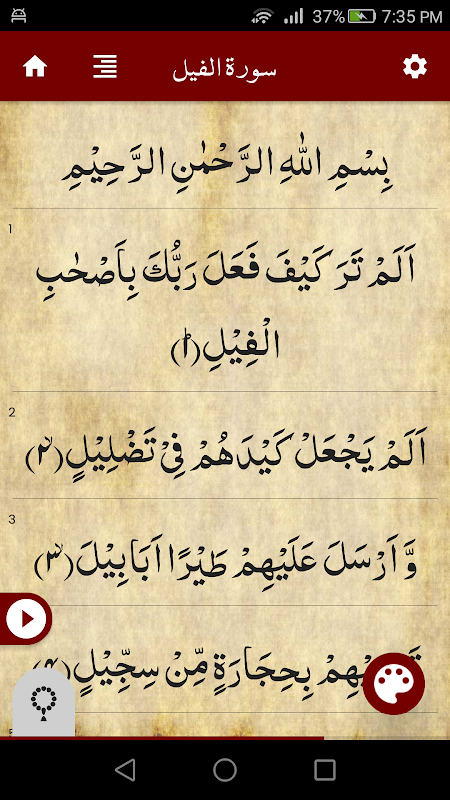 37% 7:35 PM
سورة الفيل
بِسْمِ اللّٰهِ الرَّحْمٰنِ الرَّحِيْمِ
1
اَلَمْ تَرَ كَيْفَ فَعَلَ رَبُّكَ بِاَصْحٰبِ
الْفِيْلِ(۱)
2
اَلَمْ يَجْعَلْ كَيْدَهُمْ فِيْ تَضْلِيْلٍ(۲)
3
وَّ اَرْسَلَ عَلَيْهِمْ طَيْرًا اَبَابِيْلَ(۳)
بِحِجَارَةٍ مِّنْ سِجِّيْلٍ(۴)